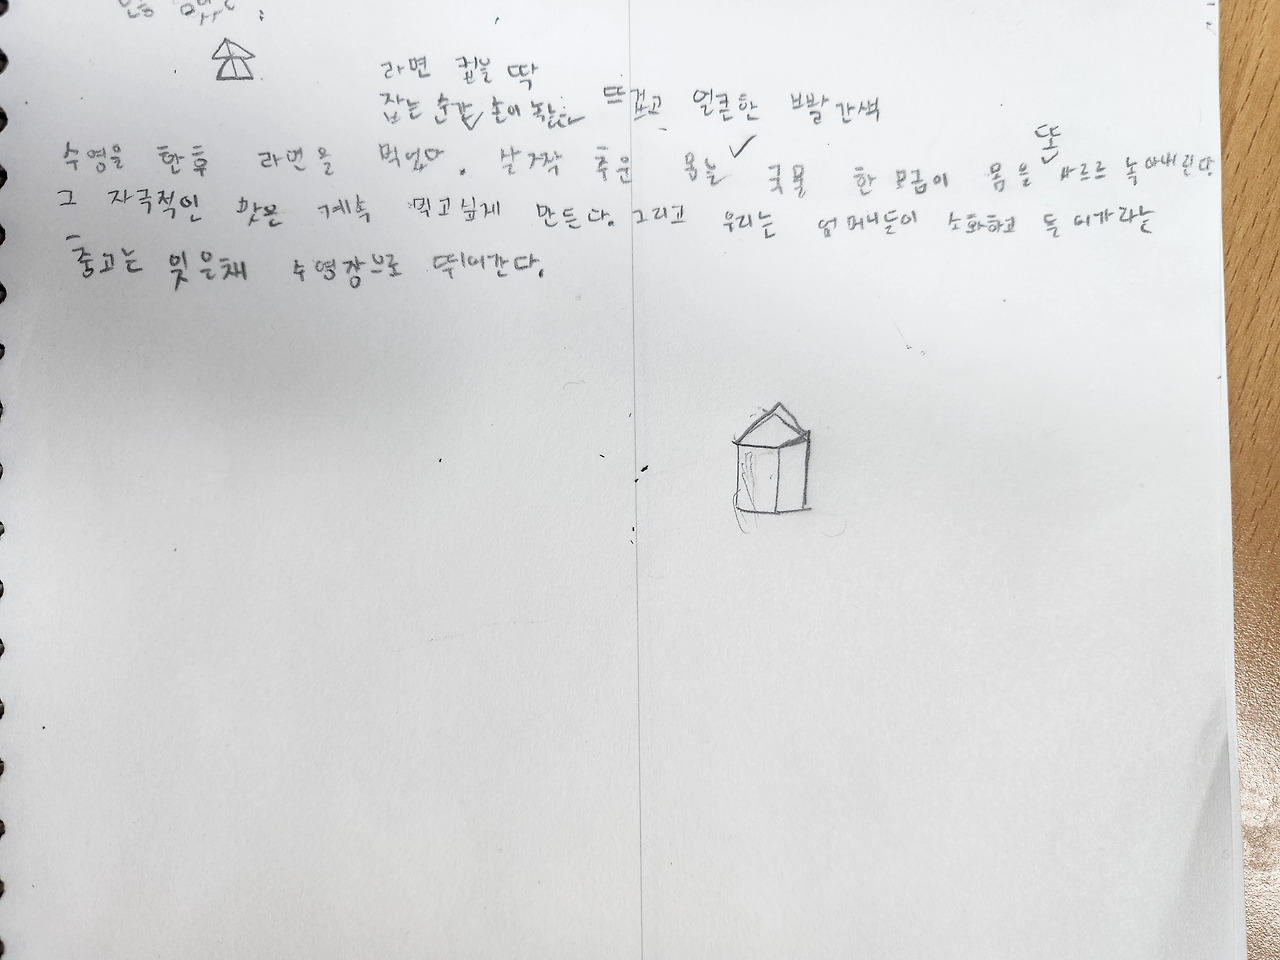 라면 컵을 딱
잡는 순간 손이 녹는다 뜨겁고 얼큰한 빨간색
수영을 한후 라면을 먹었다. 살짝 추운 몸늘 국물 한 모금이 몸을 똔 사르르 녹아내린다
그 자극적인 맛은 계속 먹고싶게 만든다. 그리고 우리는 엄머니들이 소화하고 들어가라는
충고는 잊은채 수영장으로 뛰어간다.